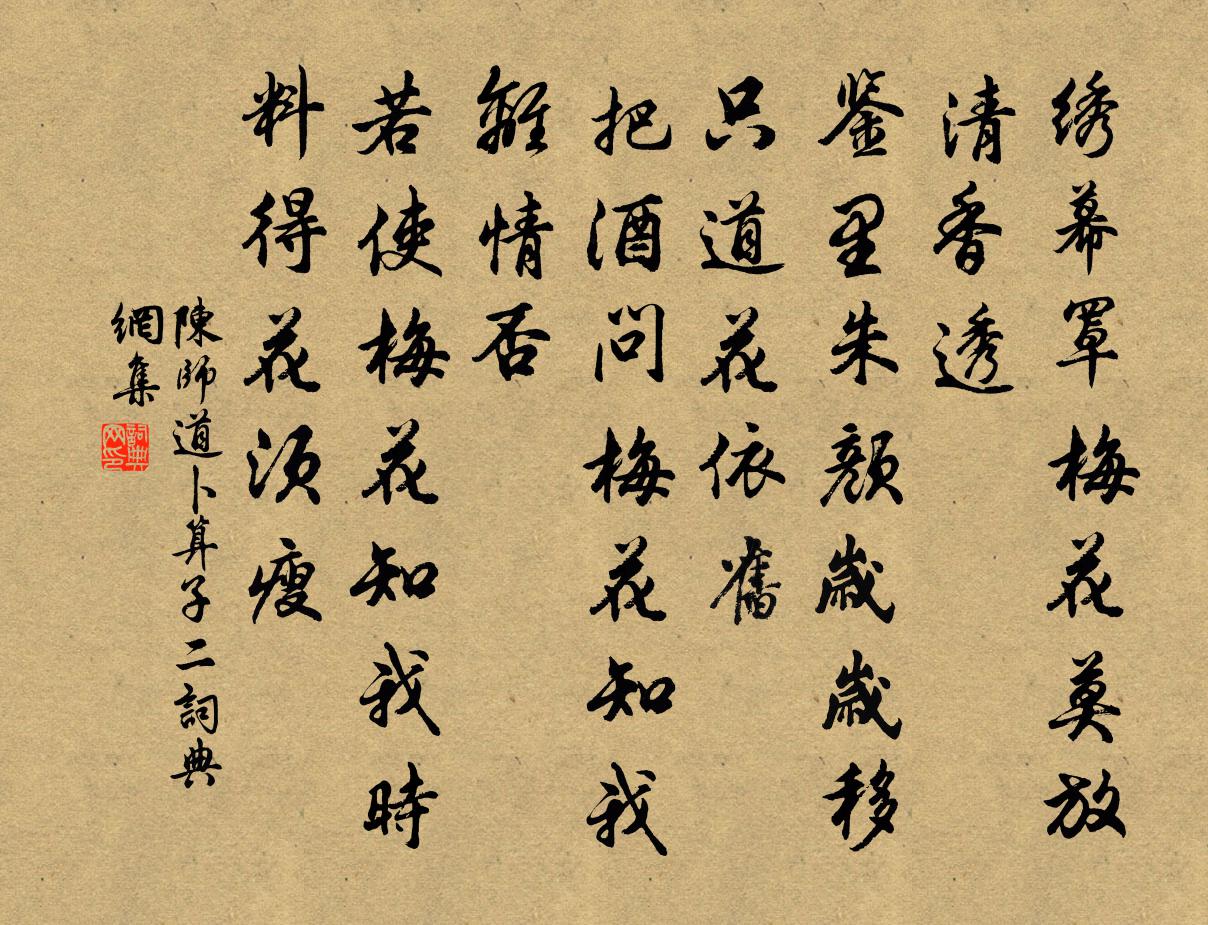 绣幕罩梅花莫放
清香透
鉴里朱颜歲歲移
只道花依舊
把酒问梅花知我
離情否
若使梅花知我時
料得花須瘦
陳師道卜算子二詞典
網集
詞典
网印